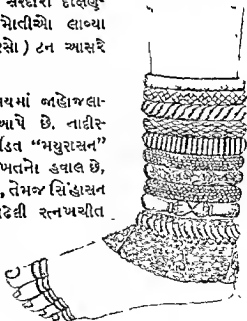 સરદારો દક્ષિણ-
મોતીઓ લાવ્યા
રસો ) ટન આસરે
યમાં જાહોજલા-
આપે છે. નાદીર-
ડિત "મયુરાસન"
ખતનો હવાલ છે,
, તેમજ સિંહાસન
ઢેલી રત્નખચીત